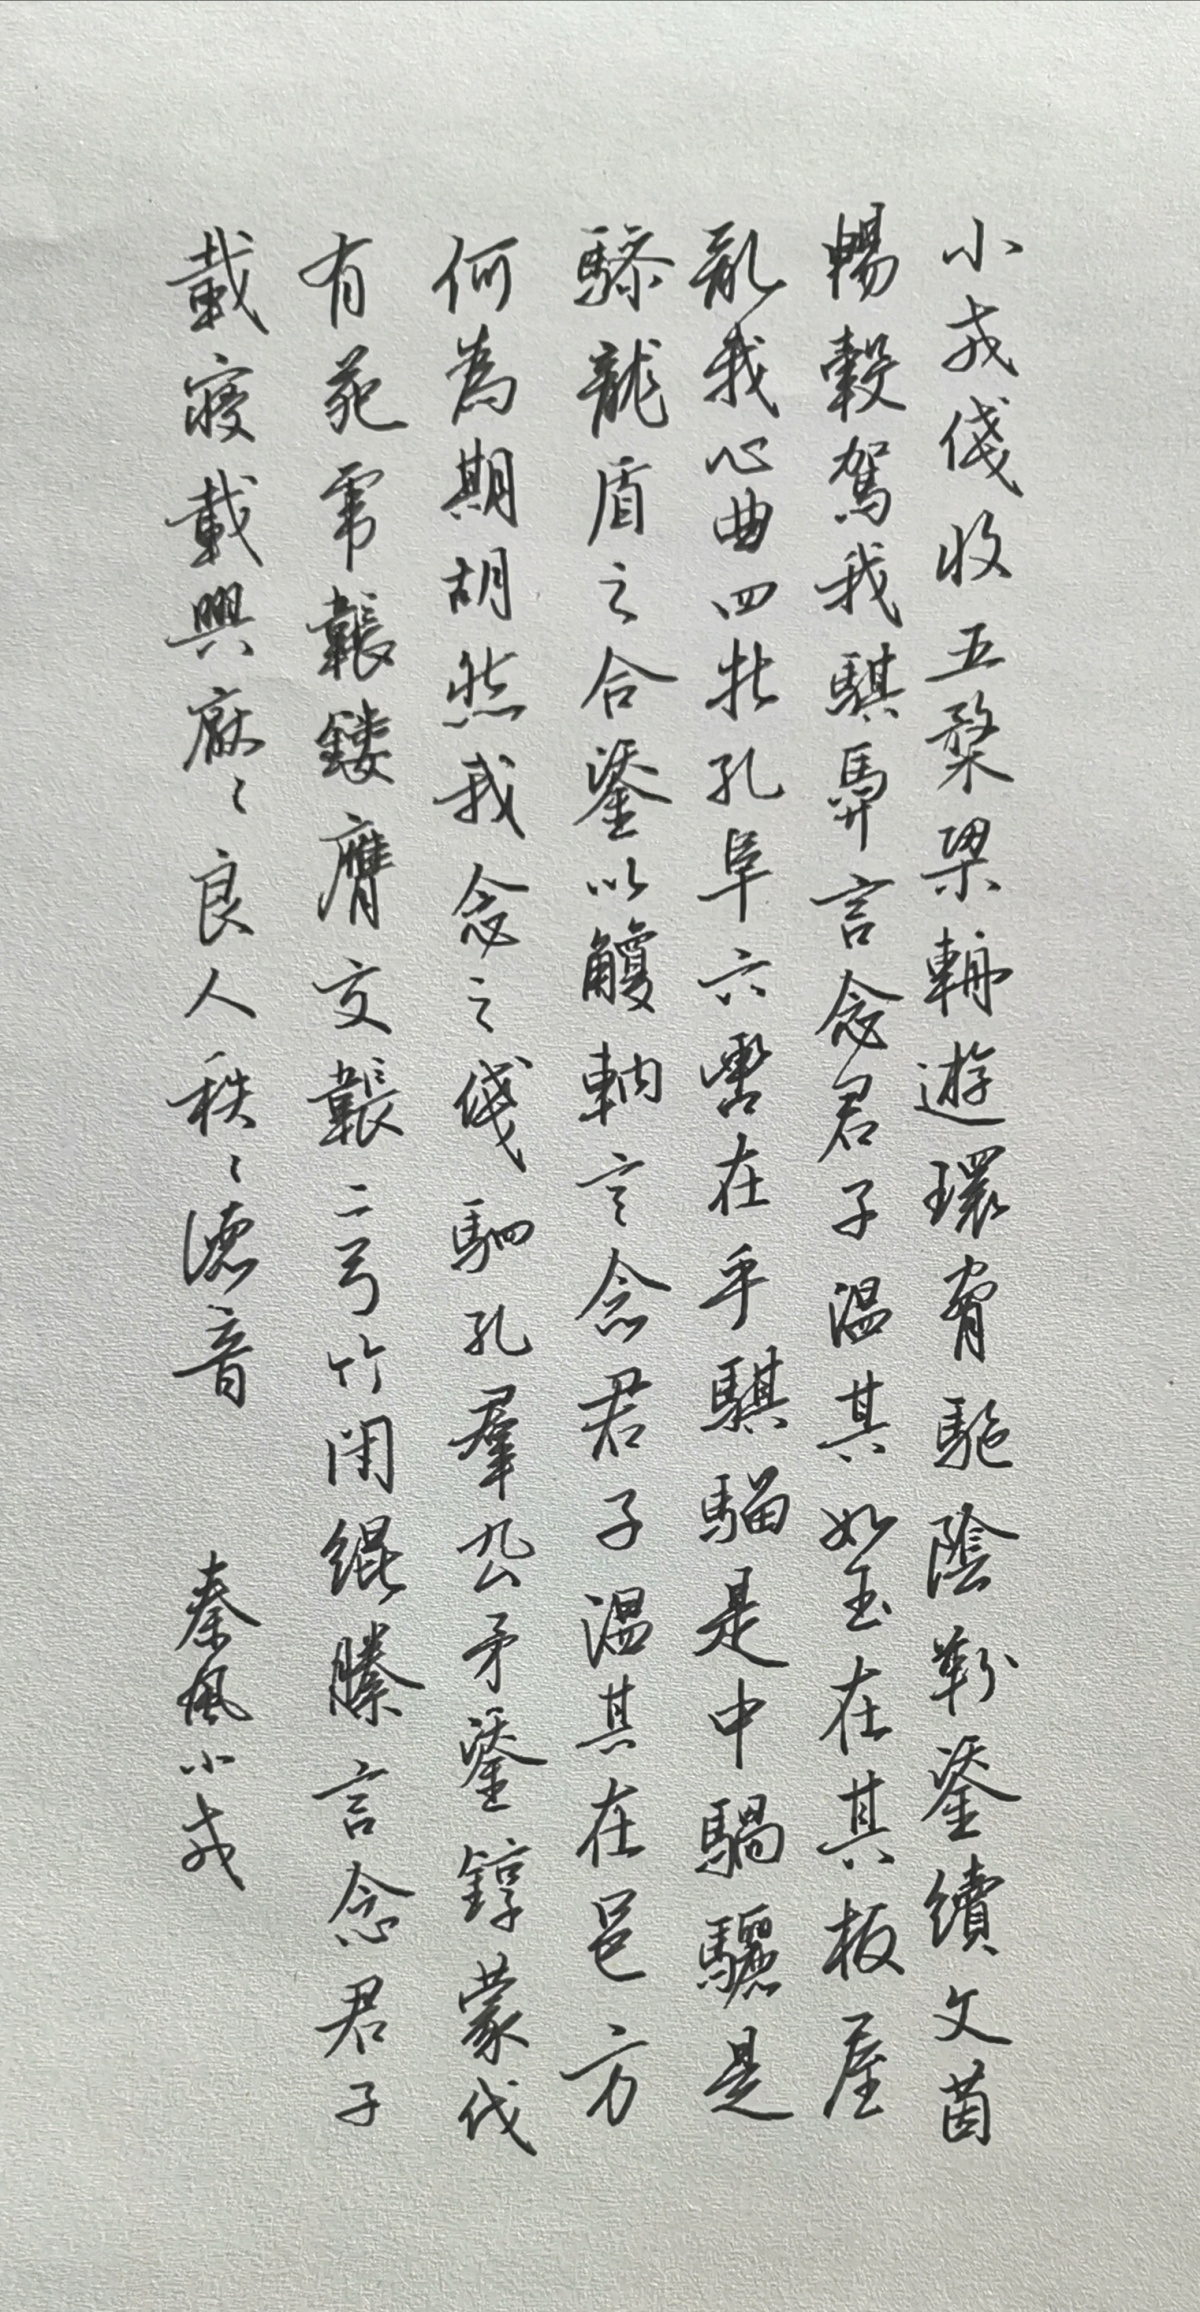 小戎俴收五楘梁輈遊環脅驅陰靷鋈續文茵
暢轂駕我騏馵言念君子溫其如玉在其板屋
亂我心曲四牡孔阜六轡在手騏騮是中騧驪是
驂龍盾之合鋈以觼軜言念君子溫其在邑方
何為期胡然我念之俴駟孔羣厹矛鋈錞蒙伐
有苑虎韔鏤膺交韔二弓竹閉緄縢言念君子
載寢載興厭〻良人秩〻德音 秦風小戎